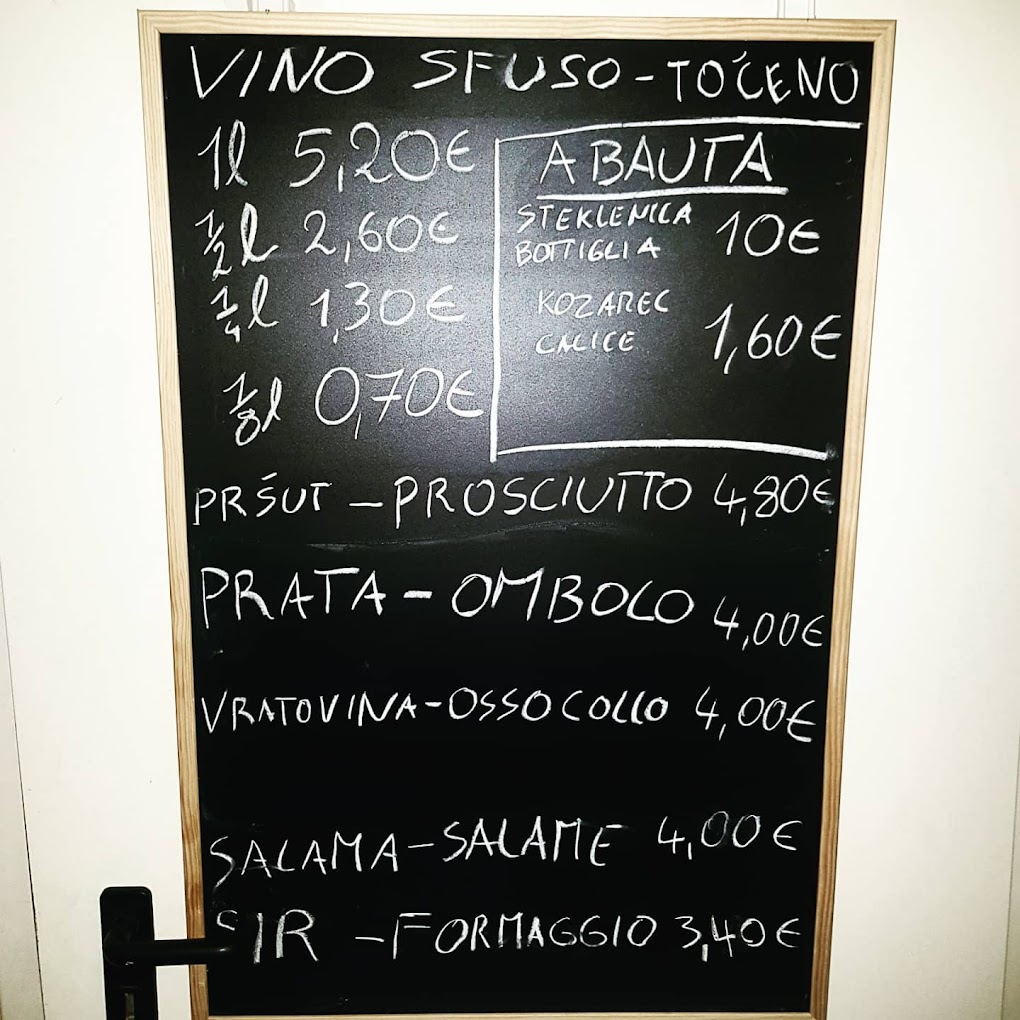 VINO SFUSO - TOČENO
1l 5,20€
1/2 l 2,60€
1/4 l 1,30€
1/8 l 0,70€
ABAUTA
STEKLENICA
BOTTIGLIA 10€
KOZAREC
CALICE 1,60€
PRŠUT - PROSCIUTTO 4,80€
PRATA - OMBOLO 4,00€
VRATOVINA - OSSOCOLLO 4,00€
SALAMA - SALAME 4,00€
SIR - FORMAGGIO 3,40€